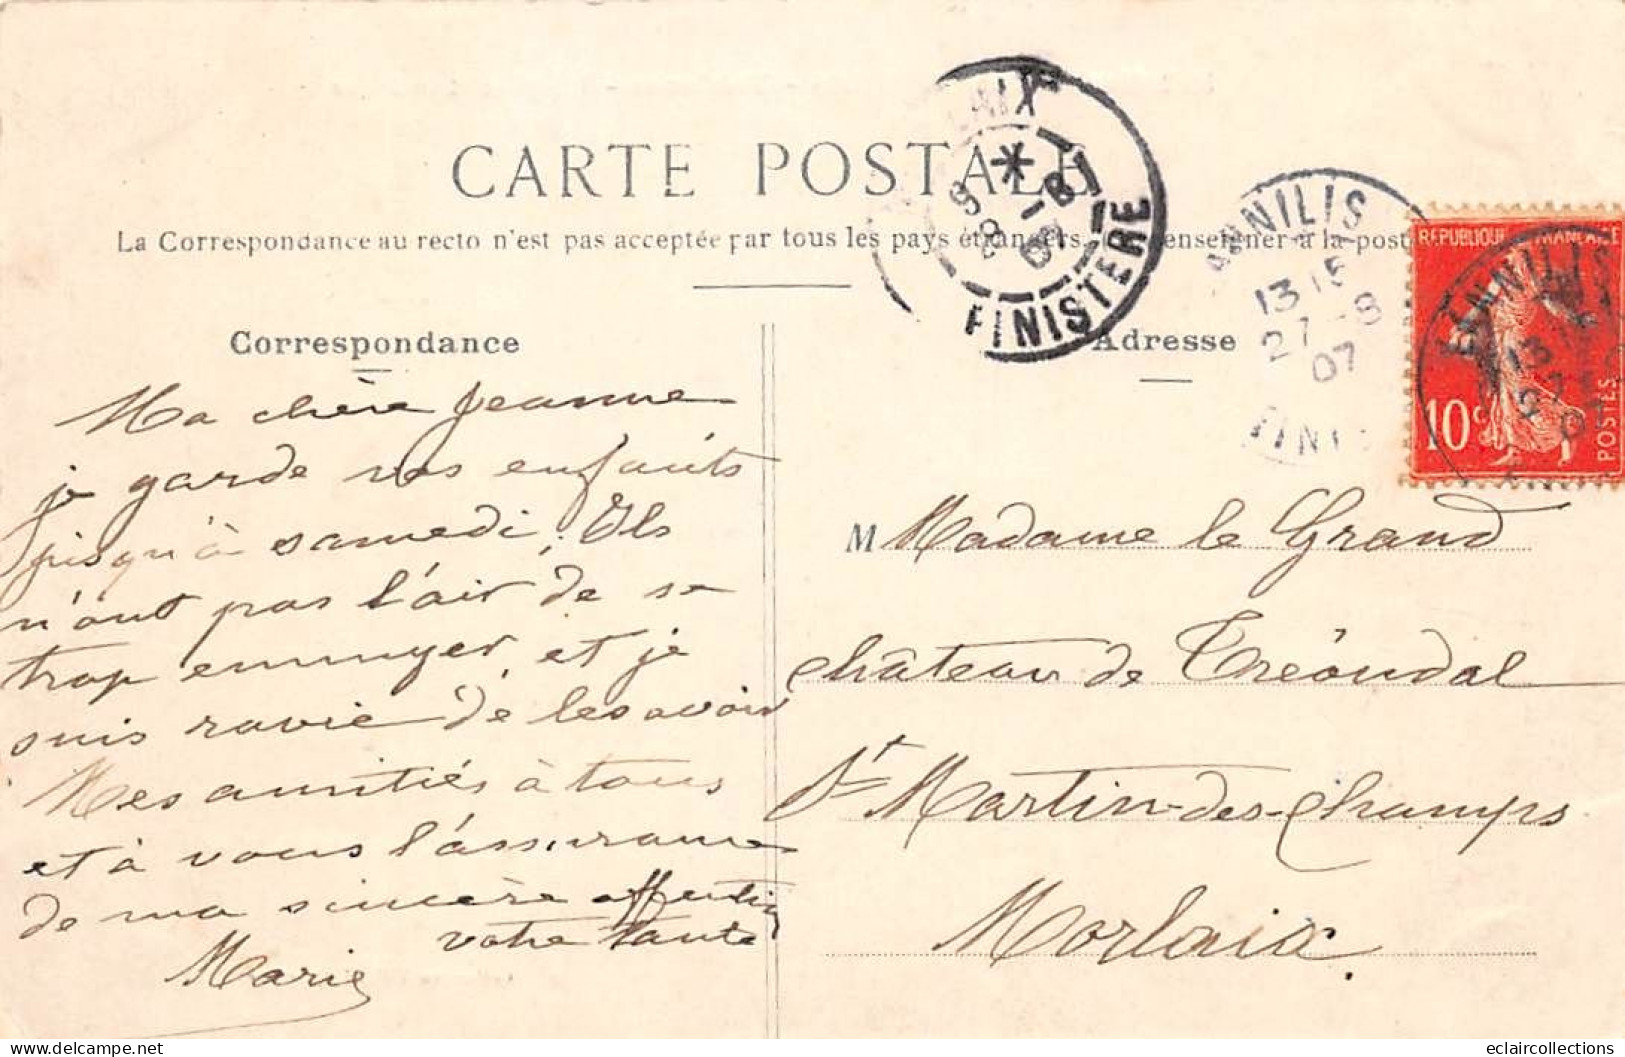 CARTE POSTALE
La Correspondance au recto n'est pas acceptée par tous les pays étrangers. enseigner à la post
AIX
FINISTERE
ANNILIS
13 15
27 -8
07
FINI
REPUBLIQUE FRANÇAISE
10c
POSTES
LANNILIS
13 15
27
07
Correspondance
Ma chère Jeanne
je garde vos enfants
jusqu'à samedi, Ils
n'ont pas l'air de se
trop ennuyer, et je
suis ravie de les avoir
Mes amitiés à tous
et à vous l'assurance
de ma sincère affection
votre tante
Marie
Adresse
M Madame le Grand
château de Tréoudal
St Martin-des-Champs
Morlaix.
delcampe.net
eclaircollections